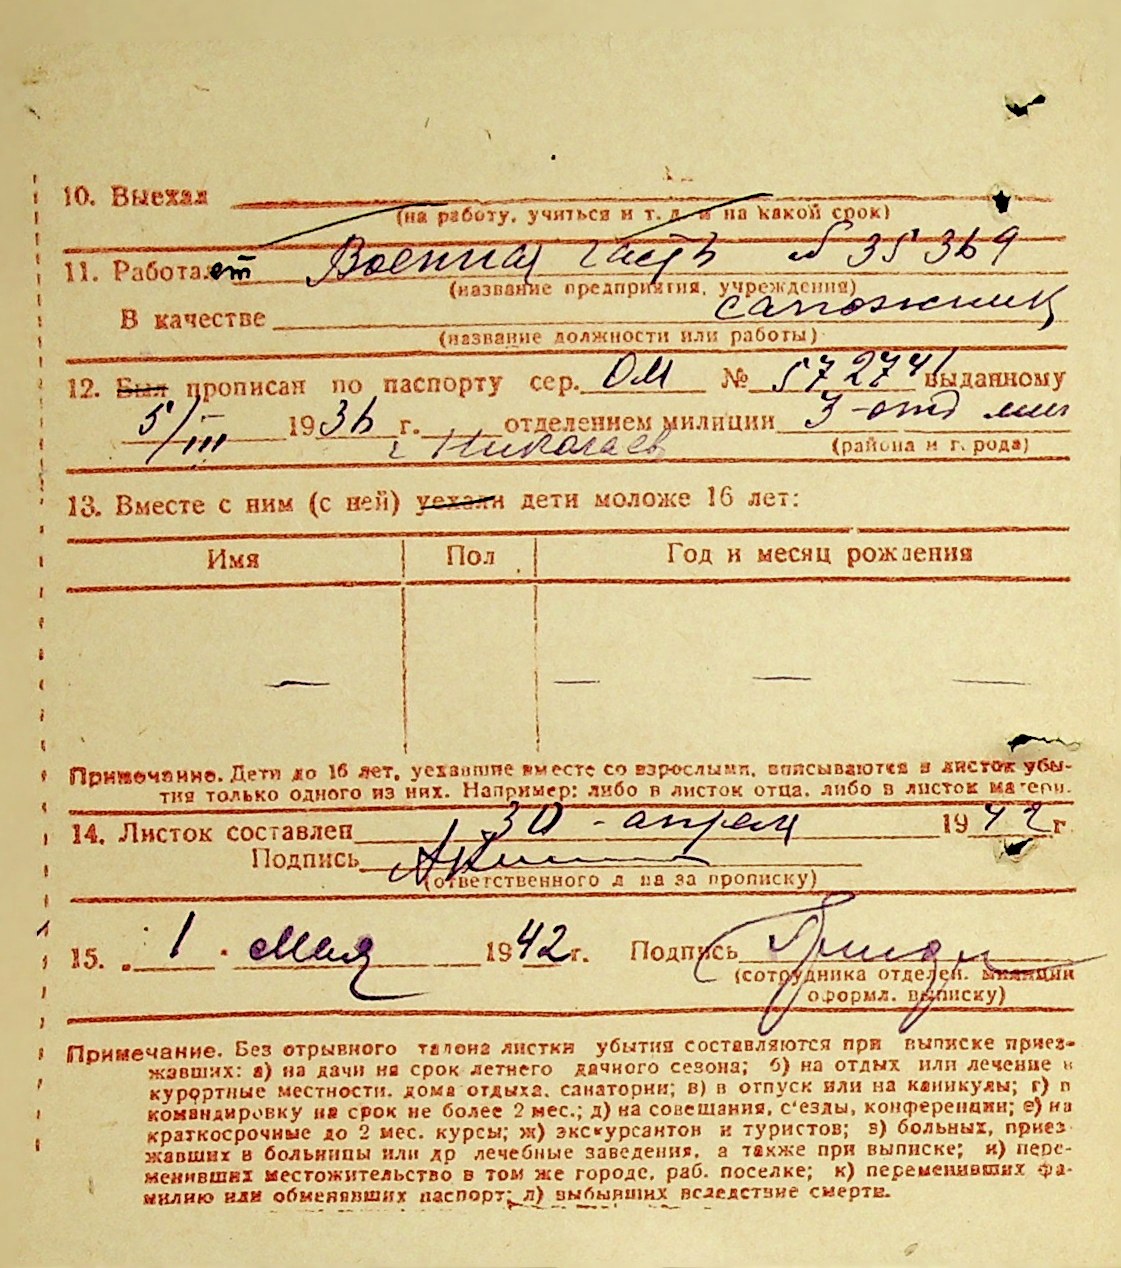 10. Выехал
(на работу, учиться и т. д. и на какой срок)
11. Работает Военная часть № 35369
(название предприятия, учреждения)
В качестве сапожник
(название должности или работы)
12. Был прописан по паспорту сер. ОМ № 572741 выданному
5/III 1936 г. отделением милиции 3 отд мил
г Николаев (района и города)
13. Вместе с ним (с ней) уехали дети моложе 16 лет:
Имя Пол Год и месяц рождения
— — — —
Примечание. Дети до 16 лет, уехавшие вместе со взрослыми, вписываются в листок убы-
тия только одного из них. Например: либо в листок отца, либо в листок матери.
14. Листок составлен 30 - апреля 1942 г
Подпись
(ответственного лица за прописку)
15. 1 · Мая 1942 г. Подпись
(сотрудника отделен. милиции
оформл. выписку)
Примечание. Без отрывного талона листки убытия составляются при выписке приез-
жавших: а) на дачи на срок летнего дачного сезона; б) на отдых или лечение в
курортные местности, дома отдыха, санатории; в) в отпуск или на каникулы; г) в
командировку на срок не более 2 мес.; д) на совещания, с'езды, конференции; е) на
краткосрочные до 2 мес. курсы; ж) экскурсантов и туристов; з) больных, приез
жавших в больницы или др лечебные заведения, а также при выписке; и) пере-
менивших местожительство в том же городе, раб. поселке; к) переменивших фа-
милию или обменявших паспорт; л) выбывших вследствие смерти.